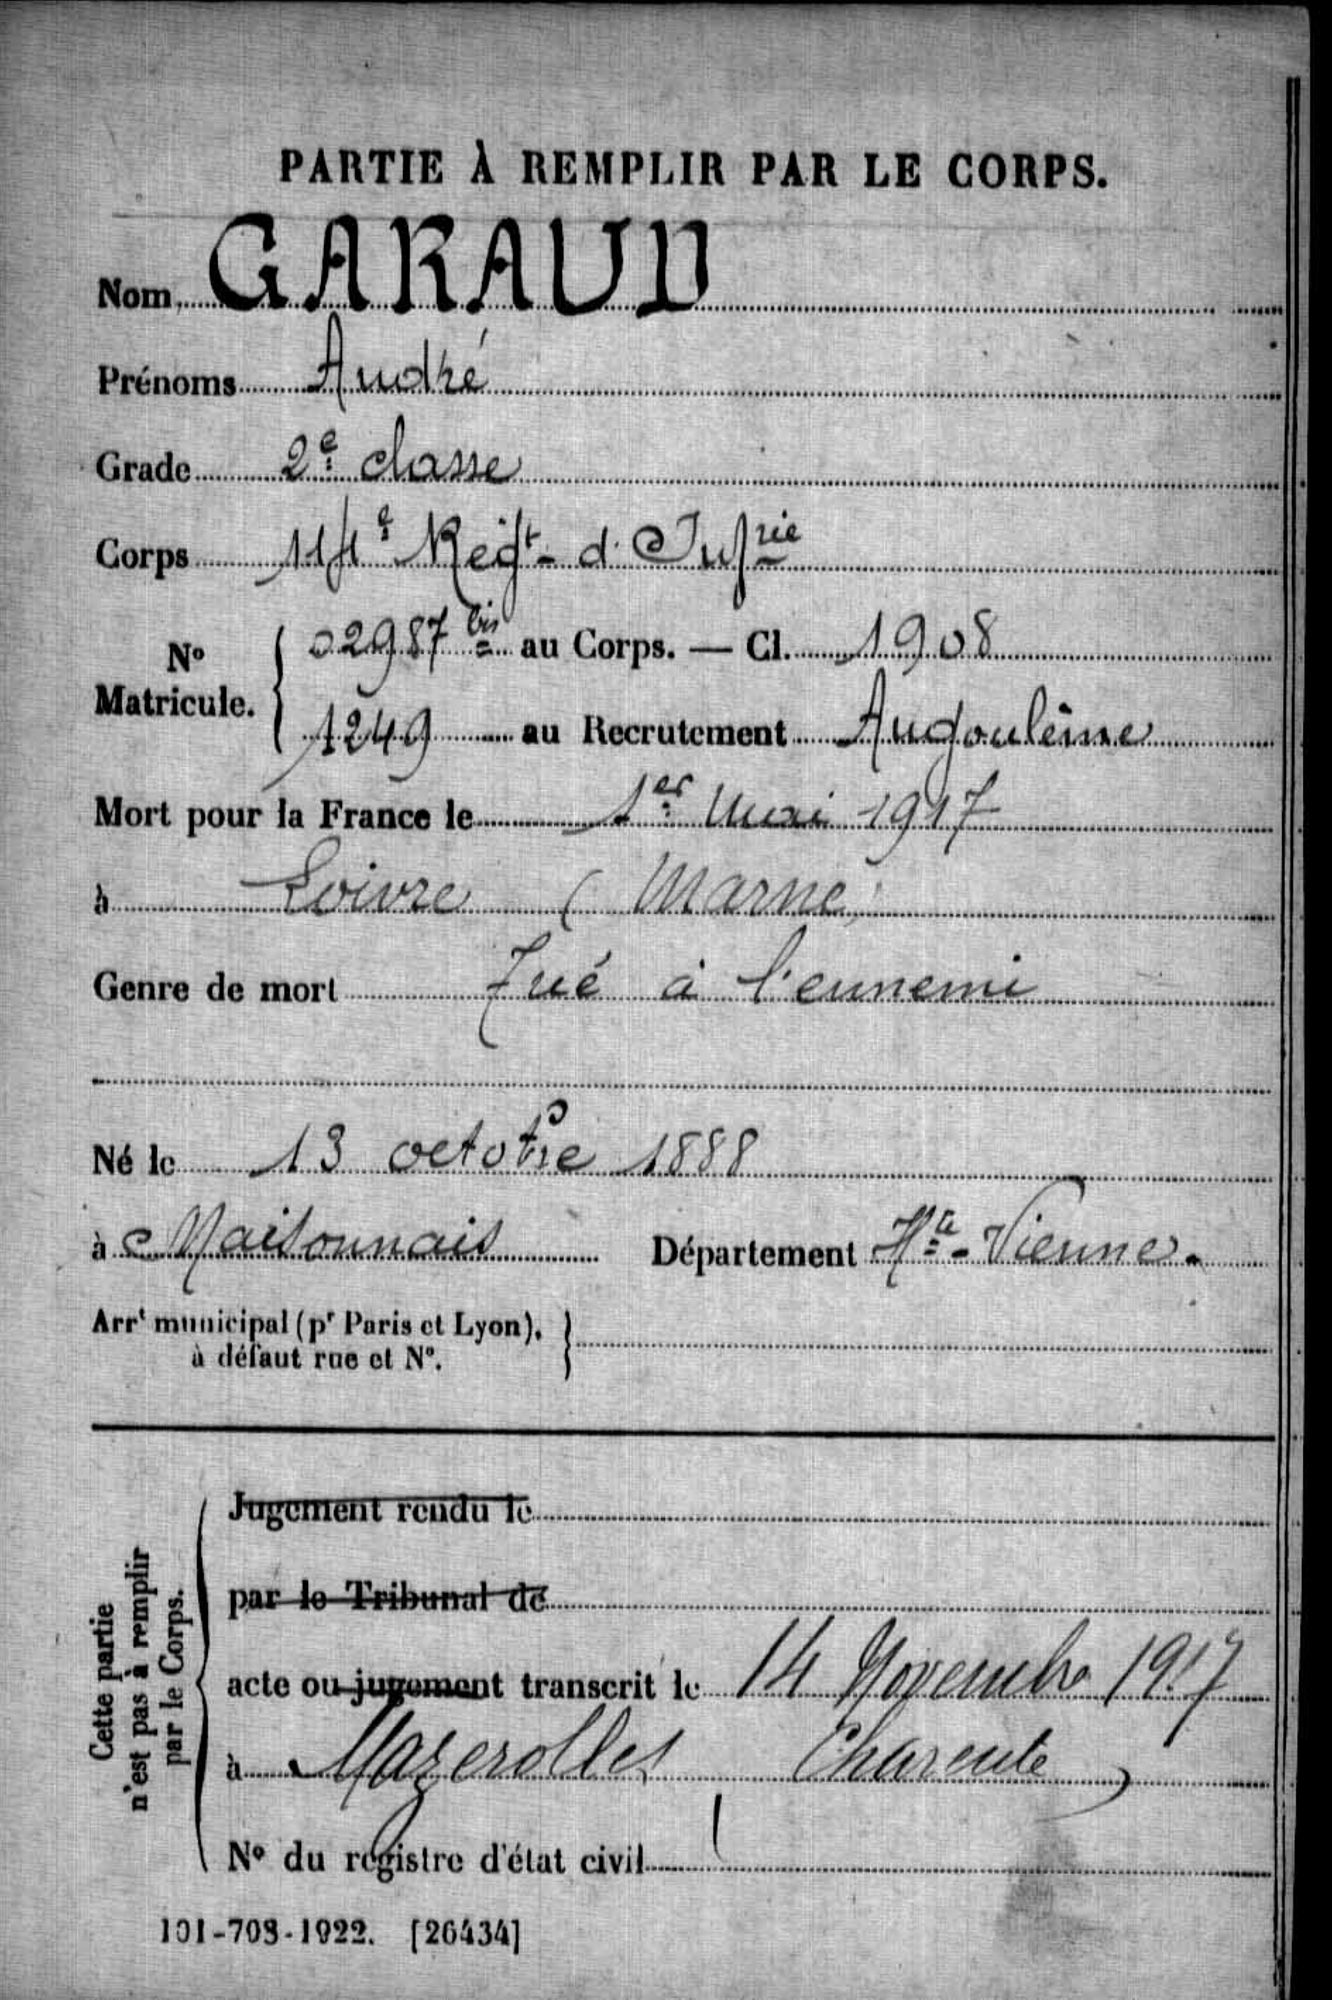 PARTIE À REMPLIR PAR LE CORPS.
Nom GARAUD
Prénoms André
Grade 2e classe
Corps 114e Regt d'Infrie
No Matricule. 02987 bis au Corps. — Cl. 1908
1249 au Recrutement Angoulême
Mort pour la France le 1er Mai 1917
à Loivre (Marne)
Genre de mort Tué à l'ennemi
Né le 13 octobre 1888
à Maisonnais Département Hte-Vienne.
Arrt municipal (pr Paris et Lyon),
à défaut rue et No.
Cette partie
n'est pas à remplir
par le Corps.
Jugement rendu le
par le Tribunal de
acte ou jugement transcrit le 14 Novembre 1917
à Mazerolles (Charente)
No du registre d'état civil
101-708-1922. [26434]